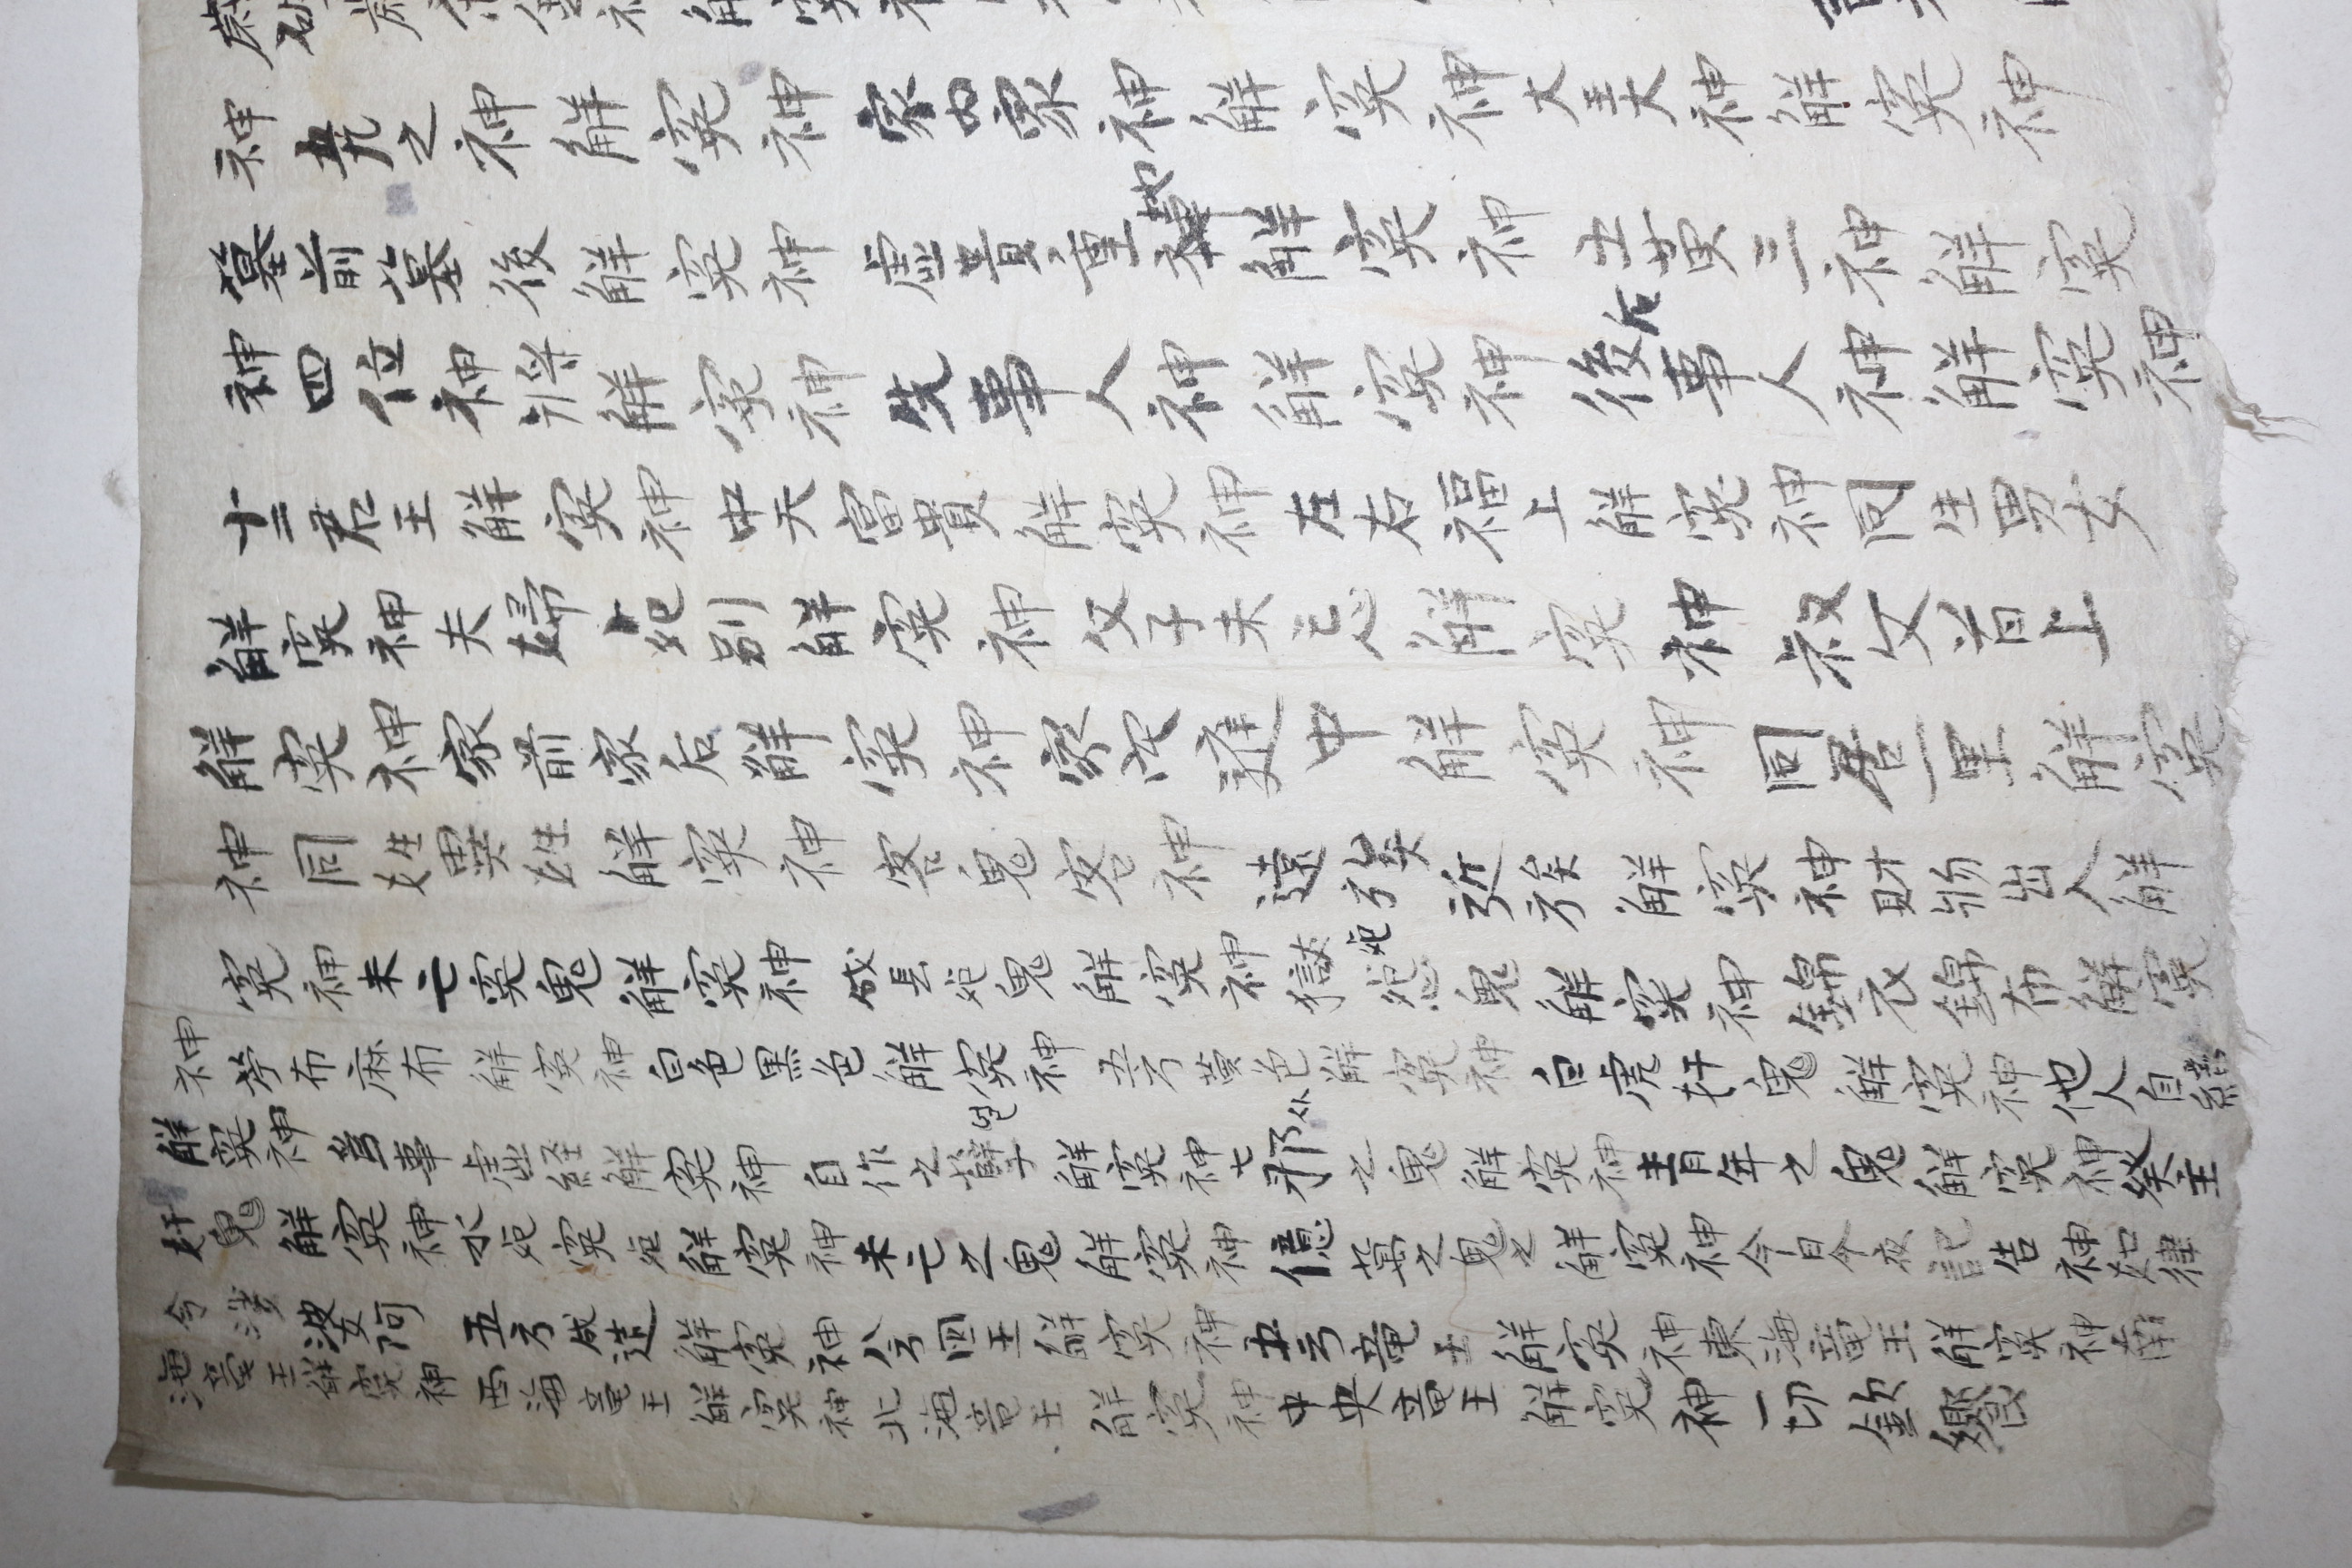 神 九之神解寃神家内家神解寃神大王大神解寃神
墓前墓後解寃神虛貴重地解寃神土黃三神解寃
神四位神將解寃神先事人神解寃神後事人神解寃神
后
十二君王解寃神中天富貴解寃神左右福上解寃神同生男女
解寃神夫婦死别解寃神父子未忘解寃神叔父首上
解寃神家前家后解寃神家宅庭中解寃神同居一里解寃
神同姓異姓解寃神客鬼客神遠族近族解寃神財物出入解
寃神未亡寃鬼解寃神成長死鬼解寃神獄死怨鬼解寃神錦衣錦布解寃
神苧布麻布解寃神白色黑色解寃神五方黃色解寃神白虎奸鬼解寃神他人自
解寃神爲事虛経解寃神自作之孼얼解寃神七邪사之鬼解寃神青年之鬼解寃神癸主
奸鬼解寃神水死寃死解寃神未亡之鬼解寃神億萬之鬼之解寃神今日今夜記告神如律
今 婆阿 五方成造解寃神八今四王解寃神五方竜王解寃神東海竜王解寃神南
海竜王解寃神西海竜王解寃神北海竜王解寃神中央竜王解寃神一切欽饗